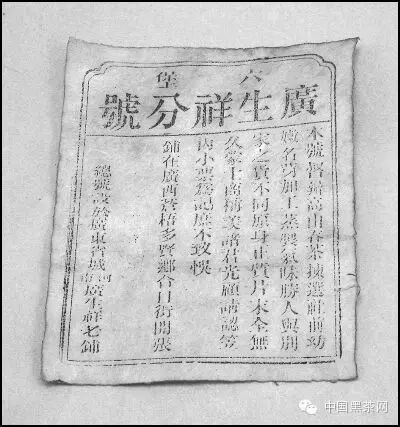 六堡
廣生祥分號
本號督辦高山春茶揀選社前幼
嫩名芽加工蒸製氣味勝人與別
家之賣不同原身正質片末全無
久蒙士商稱美諸君光顧請認笠
內小票為記庶不致悞
鋪在廣西蒼梧多賢鄉合口街開張
總號設於廣東省城河南廣生祥老鋪
中国黑茶网